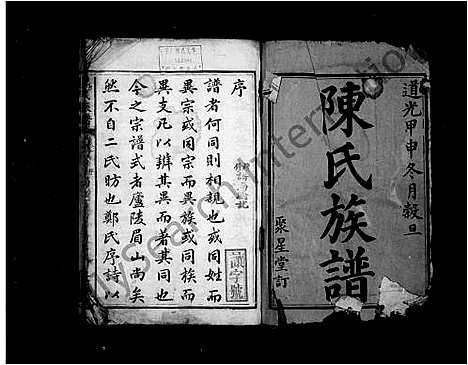 道光甲申冬月穀旦
陳氏族譜
聚星堂訂
序
譜者何同則相親也或同姓而
異宗或同宗而異族或同族而
異支凡以辨其異而著其同也
今之宗譜式者廬陵眉山尚矣
然不自二氏昉也鄭氏序詩以